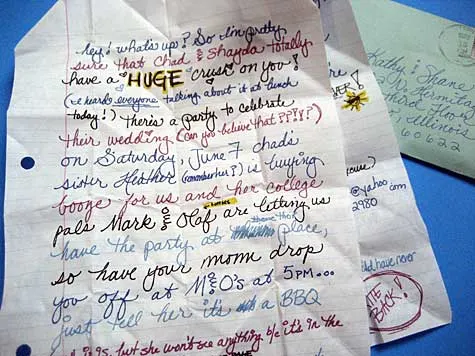 hey! what's up? So i'm pretty
sure that Chad & Shayda totally
have a HUGE crush on you!
(I heard everyone talking about it at lunch
today!) there's a party to celebrate
their wedding (can you believe that ??!??)
on Saturday, June 7 chad's
sister Heather (remember her?) is buying
booze for us and her college
pals Mark & Olaf are letting us
have the party at place,
so have your mom drop
you off at M&O's at 5PM...
just tell her it's a BBQ
but she won't see anything b/c it's in the
@yahoo.com
2980
have never
BACK!
& Shane
Illinois
60622